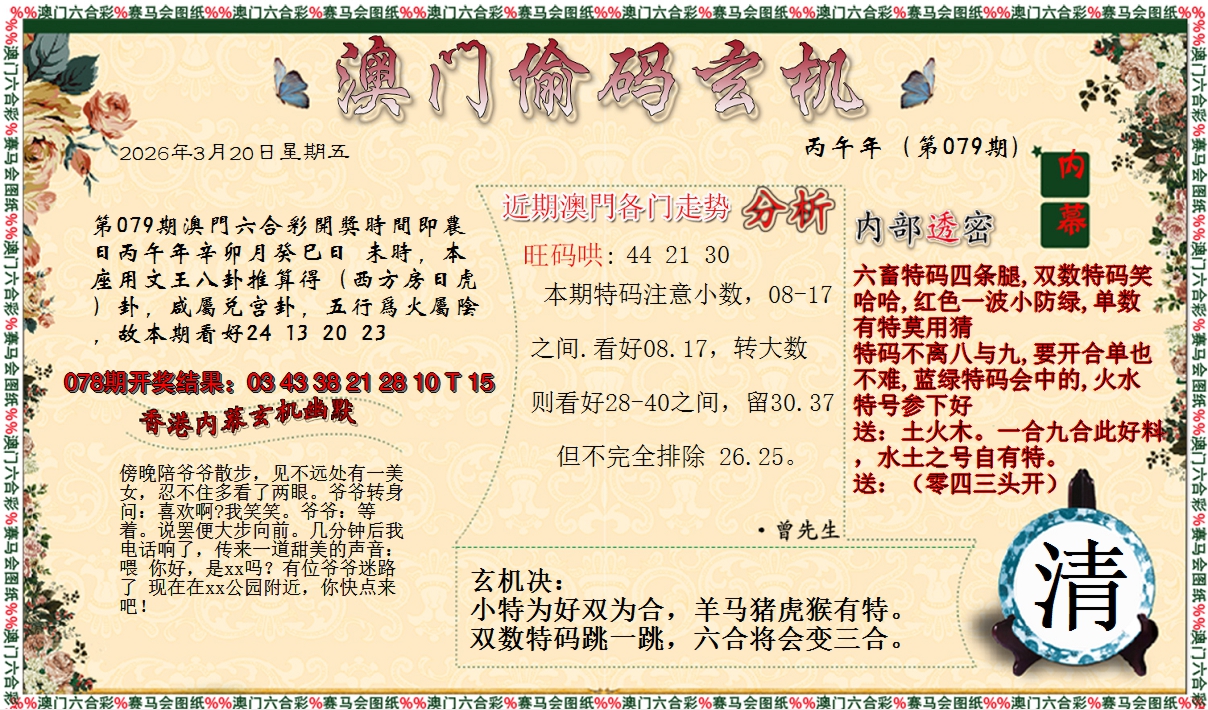 %%澳门六合彩%赛马会图纸%%澳门六合彩%赛马会图纸%%澳门六合彩%赛马会图纸%%澳门六合彩%赛马会图纸%%澳门六合彩%赛马会图纸%%澳门六合彩%赛马会图纸%%
澳门偷码玄机
2026年3月20日星期五
丙午年（第079期）
内幕
第079期澳門六合彩開獎時間即農
日丙午年辛卯月癸巳日 未時，本
座用文王八卦推算得（西方房日虎
）卦，咸屬兑宫卦，五行爲火屬陰
，故本期看好24 13 20 23
078期开奖结果：03 43 38 21 28 10 T 15
香港内幕玄机幽默
傍晚陪爷爷散步，见不远处有一美
女，忍不住多看了两眼。爷爷转身
问：喜欢啊?我笑笑。爷爷：等
着。说罢便大步向前。几分钟后我
电话响了，传来一道甜美的声音：
喂 你好，是xx吗？有位爷爷迷路
了 现在在xx公园附近，你快点来
吧！
近期澳門各门走势 分析
旺码哄：44 21 30
本期特码注意小数，08-17
之间.看好08.17，转大数
则看好28-40之间，留30.37
但不完全排除 26.25。
·曾先生
玄机决：
小特为好双为合，羊马猪虎猴有特。
双数特码跳一跳，六合将会变三合。
内部透密
六畜特码四条腿,双数特码笑
哈哈,红色一波小防绿,单数
有特莫用猜
特码不离八与九,要开合单也
不难,蓝绿特码会中的,火水
特号参下好
送：土火木。一合九合此好料
，水土之号自有特。
送：（零四三头开）
清
%%澳门六合彩%赛马会图纸%%澳门六合彩%赛马会图纸%%澳门六合彩%赛马会图纸%%澳门六合彩%赛马会图纸%%澳门六合彩%赛马会图纸%%澳门六合彩%赛马会图纸%%